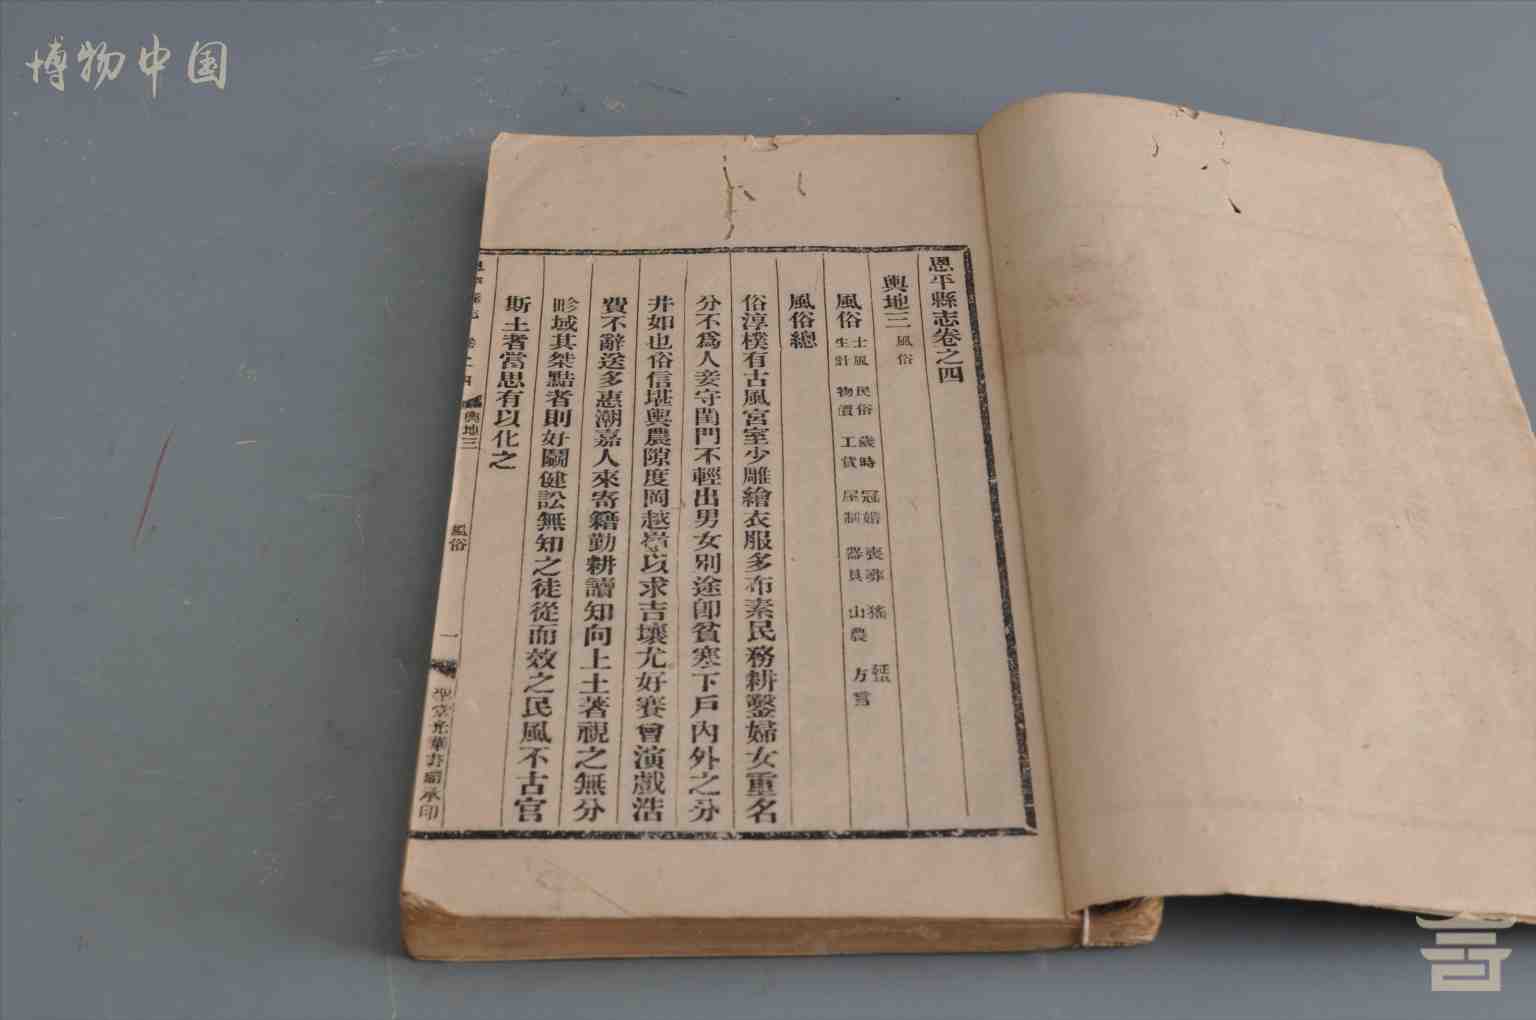 博物中国
恩平縣志卷之四
輿地三 風俗
風俗 士風 民俗 歲時 冠婚 喪葬 猺蜑
生計 物價 工貲 屋制 器具 山農 方言
風俗總
俗淳樸有古風宮室少雕繪衣服多布素民務耕鑿婦女重名
分不爲人妾守閨門不輕出男女別途卽貧寒下戶內外之分
井如也俗信堪輿農隙度岡越嶺以求吉壤尤好賽會演戲浩
費不辭送多惠潮嘉人來寄籍勤耕讀知向上土著視之無分
畛域其桀黠者則好鬭健訟無知之徒從而效之民風不古官
斯土者當思有以化之
恩平縣志 卷之四 輿地三 風俗 一 聖堂光華書局承印